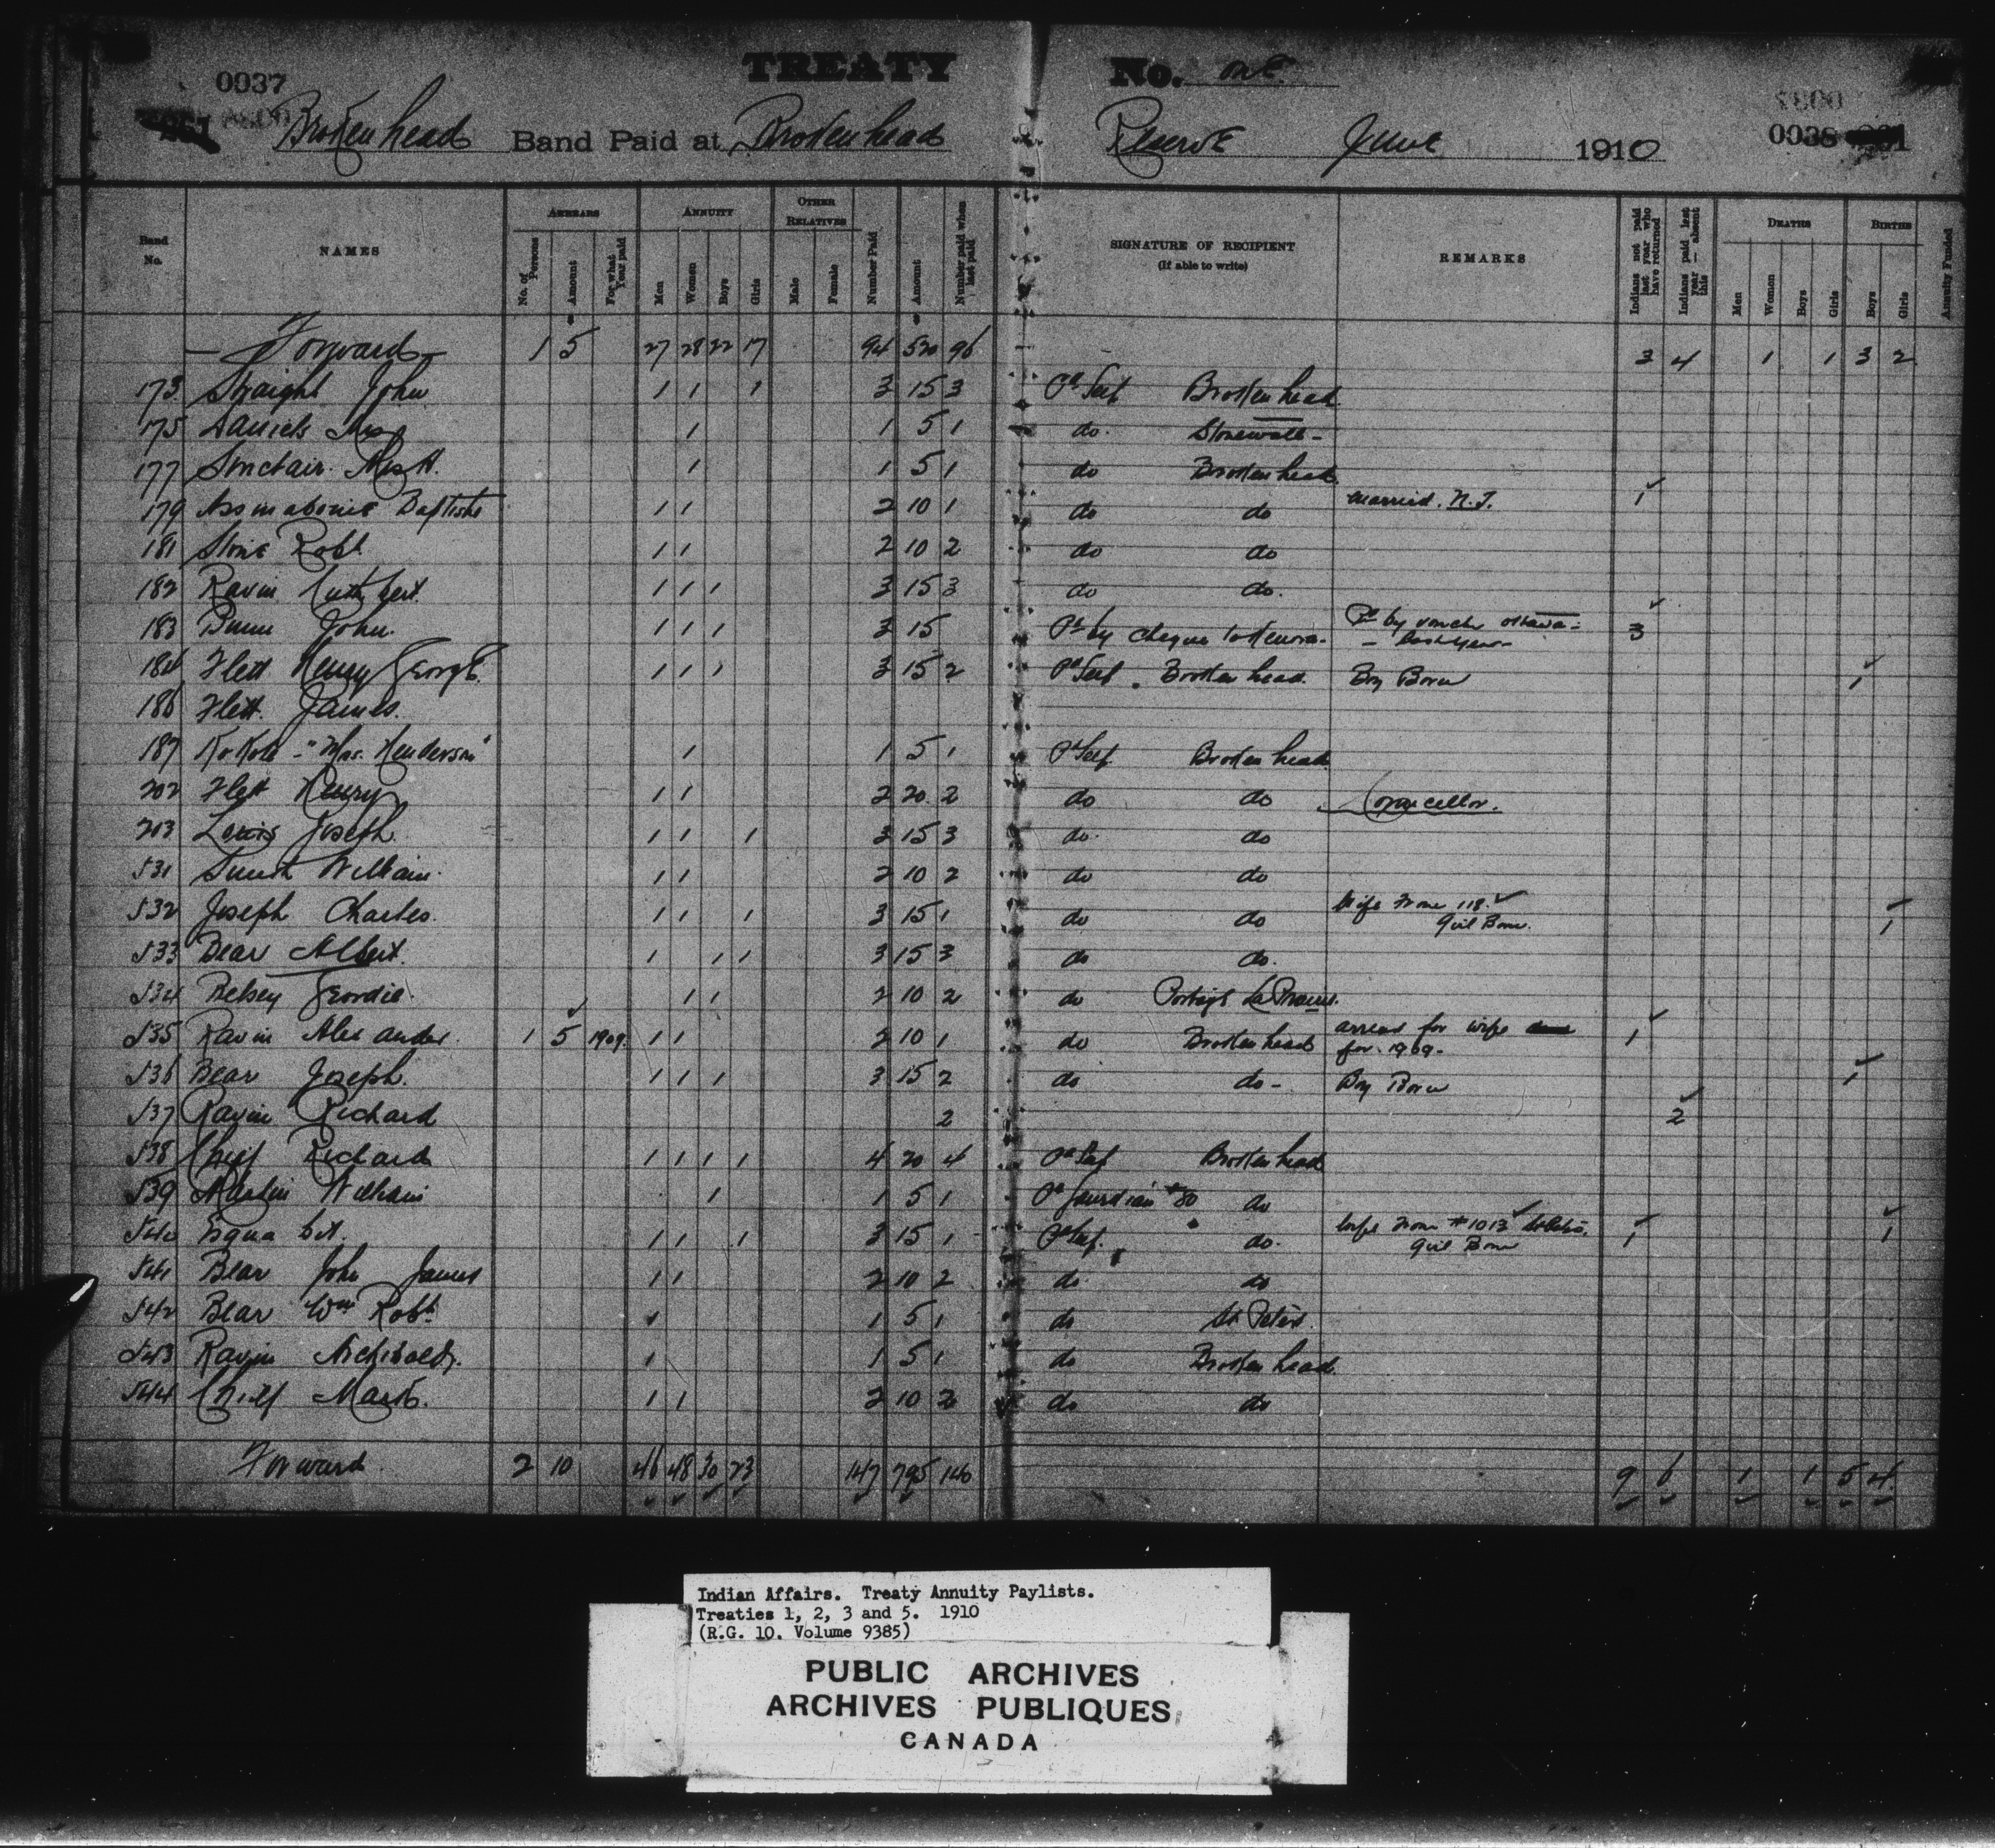 0037
TREATY No. one.
0038
Brokenhead Band Paid at Brokenhead Reserve June 1910
Band No.
NAMES
ARREARS
No. of Persons
Amount
For what Year paid
ANNUITY
Men
Women
Boys
Girls
OTHER RELATIVES
Male
Female
Number Paid
Amount
Number paid when last paid
SIGNATURE OF RECIPIENT
(If able to write)
REMARKS
Indians not paid last year who have returned
Indians paid last year — absent this
DEATHS
Men
Women
Boys
Girls
BIRTHS
Boys
Girls
Annuity Funded
— Forward — 1 5 27 28 22 17 94 520 96 3 4 1 1 3 2
173 Straight John 1 1 1 3 15 3 Pd Self Brokenhead
175 Daniels Mrs 1 1 5 1 do. Stonewall -
177 Sinclair Mrs A. 1 1 5 1 do Brokenhead
179 Assinaboine Baptiste 1 1 2 10 1 do do married. N.T. 1
181 Stone Robt. 1 1 2 10 2 do do
182 Ravin Cuthbert. 1 1 1 3 15 3 do do.
183 John. 1 1 1 3 15 Pd by cheque to Kenora. Pd by Ottawa - last year - 3
184 Flett Henry George. 1 1 1 3 15 2 Pd Self. Broken head. Boy Born 1
186 Flett. James.
187 - "Mrs. Henderson" 1 1 5 1 Pd Self Broken head
202 Flett Henry 1 1 2 20 2 do do Councellor.
203 Lewis Joseph. 1 1 1 3 15 3 do. do
531 Smith William. 1 1 2 10 2 do do
532 Joseph Charles. 1 1 1 3 15 1 do do Wife from 118. Girl Born. 1
533 Bear Albert. 1 1 1 3 15 3 do do.
534 Belsey Geordie. 1 1 2 10 2 do Portage La Prairie.
535 Ravin Alexander. 1 5 1909. 1 1 2 10 1 do Brokenhead arrears for wife for 1909. 1
536 Bear Joseph. 1 1 1 3 15 2 do do - Boy Born 1
537 Ravin Richard 2 2
538 Chief Richard 1 1 1 1 4 20 4 Pd Self Brokenhead
539 Martin William 1 1 5 1 Pd Guardian #80 do
540 1 1 1 3 15 1 Pd Self. do. Wife from #1013 St Peters, Girl Born 1 1
541 Bear John James 1 1 2 10 2 do do
542 Bear Wm Robt. 1 1 5 1 do St Peters.
543 Ravin Archibald. 1 1 5 1 do Broken head.
544 Chief Mark. 1 1 2 10 2 do do
Forward 2 10 46 48 30 23 147 795 140 9 6 1 1 5 4
Indian Affairs. Treaty Annuity Paylists.
Treaties 1, 2, 3 and 5. 1910
(R.G. 10. Volume 9385)
PUBLIC ARCHIVES
ARCHIVES PUBLIQUES
CANADA